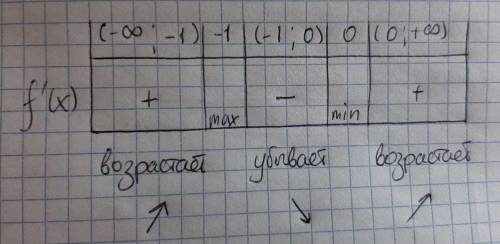 (-∞ ; -1) -1 (-1 ; 0) 0 (0 ; +∞)
f'(x) + max − min +
возрастает убывает возрастает
↗ ↘ ↗